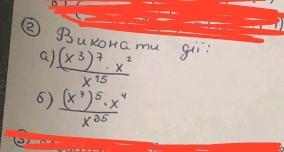 ② Виконати дії:
а) (x³)⁷ · x²
x¹⁵
б) (x⁷)⁵ · x⁴
x³⁵